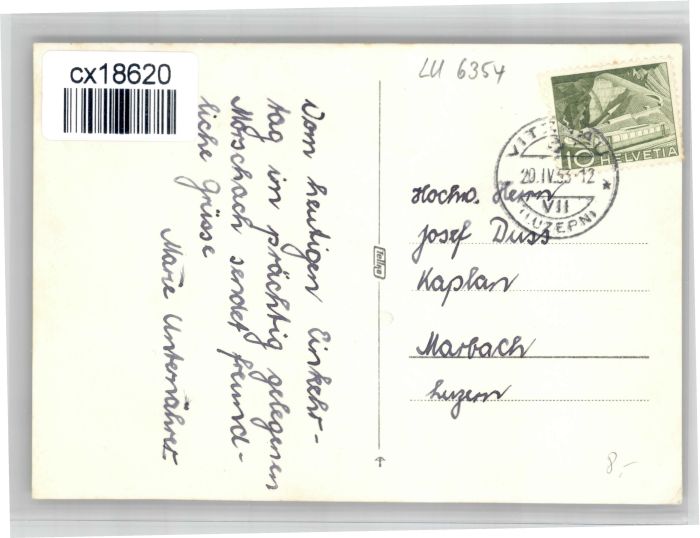 cx18620
LU 6354
10 HELVETIA
20.IV.53-12
VII
(LUZERN)
Vom heutigen Einkehr-
tag im prächtig gelegenen
Morschach sendet freund-
liche Grüsse
Marie Unternährer
Fellga
Hochw. Herrn
Josef Duss
Kaplan
Marbach
Luzern
8.-